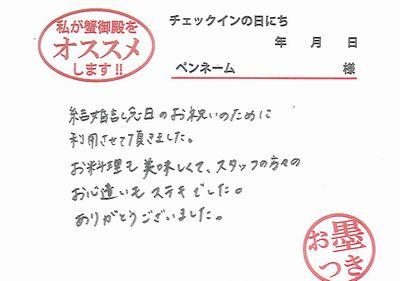 私が蟹御殿を
オススメ
します!!
チェックインの日にち
年 月 日
ペンネーム 様
結婚記念日のお祝いのために
利用させて頂きました。
お料理も美味しくて、スタッフの方々の
お心遣いもステキでした。
ありがとうございました。
お墨
つき